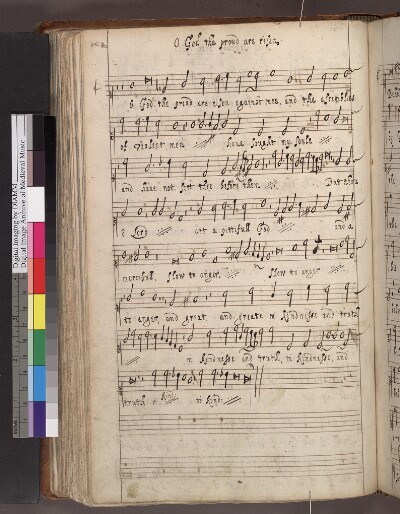 O God the proud are risen.
O God the proud are risen against mee, and the assemblies
of violent men have sought my soule
and have not sett thee before them But thou
O Lord art a pitifull God and a
mercifull, slow to anger, slow to anger
to anger, and great and greate in kindnesse and truth
in kindnesse and truth, in kindnesse, and
truth in kind:
Digital Imaging by DIAMM
Digital Image Archive of Medieval Music